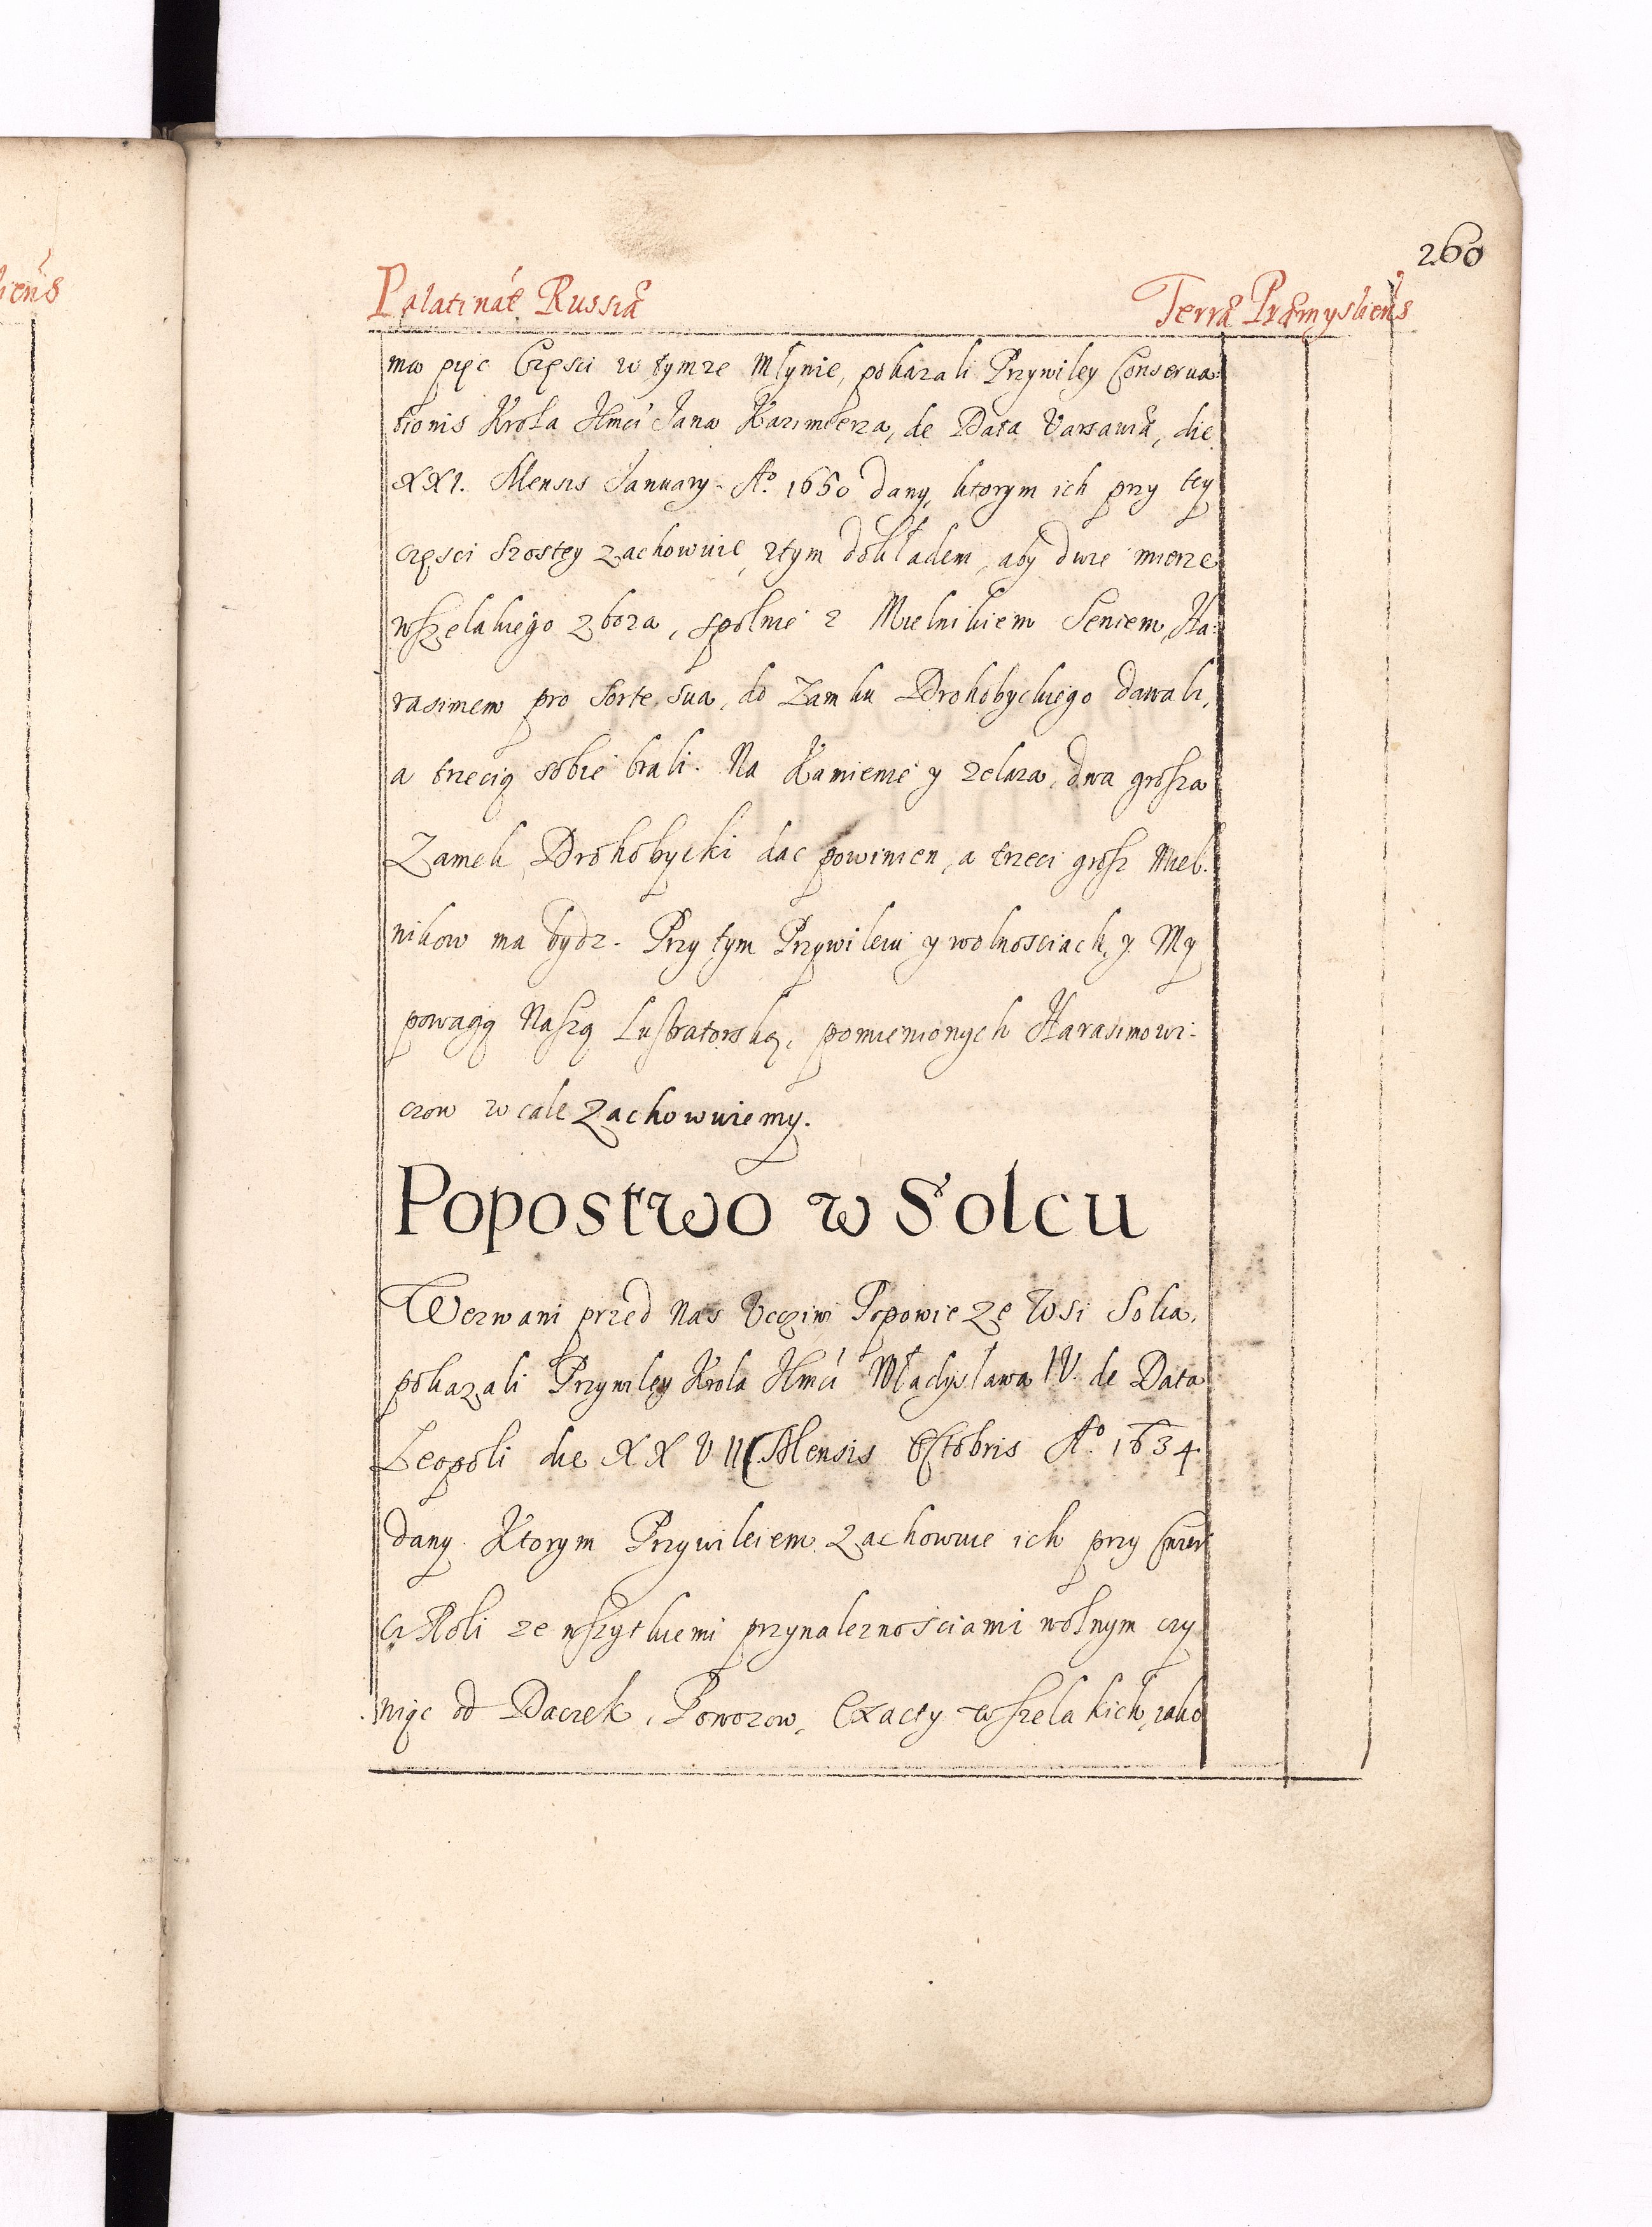 260
liens
Palatinat Russiæ Terræ Præmysliens
ma pięc Częsci w tymze Młynie, pokazali Przywiley Conserva-
tionis Krola Jmci Jana Kazimierza, de Data Varsaviæ, die
XXI. Mensis January Aº. 1650 dany, ktorym ich przy tey
częsci szostey zachowuie, ztym dokładem, aby dwie mierze
wszelakiego zboza, społnie z Mielnikiem Seniem, Ha-
rasimem pro sorte sua, do Zamku Drohobyckiego dawali,
a trzecią sobie brali. Na Kamienie y zelaza, dwa grosza
Zamek Drohobycki dac powinien, a trzeci grosz Miel-
nikow ma bydz. Przy tym Przywileiu y wolnosciach, y My
powagą Naszą Lustratorską, pomienionych Harasimowi-
czow w cale zachowuiemy.
Popostwo w Solcu
Wezwani przed nas Uczciwi Popowie ze Wsi Solca,
pokazali Przywiley Krola Jmci Władysława IV. de Data
Leopoli die XXVII Mensis Octobris Aº. 1634.
dany. Ktorym Przywileiem zachowuie ich przy
Roli ze wszytkiemi przynaleznościami wolnym czy
niąc od Daczek, Powozow, Exacty wszelakich, iako